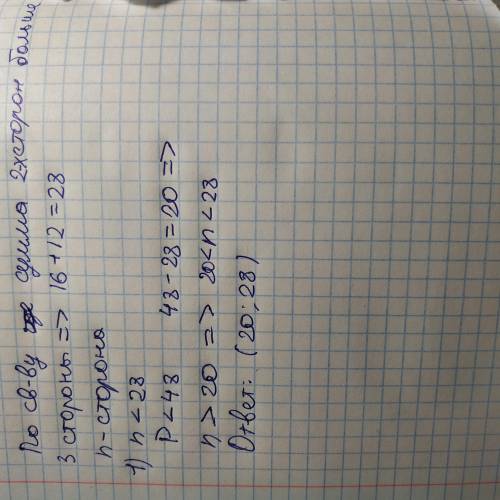 По св-ву сумма 2-х сторон больше
3 стороны => 16+12=28
n-сторона
1) n < 28
P < 48 48-28=20 =>
n > 20 => 20<n<28
Ответ: (20; 28)